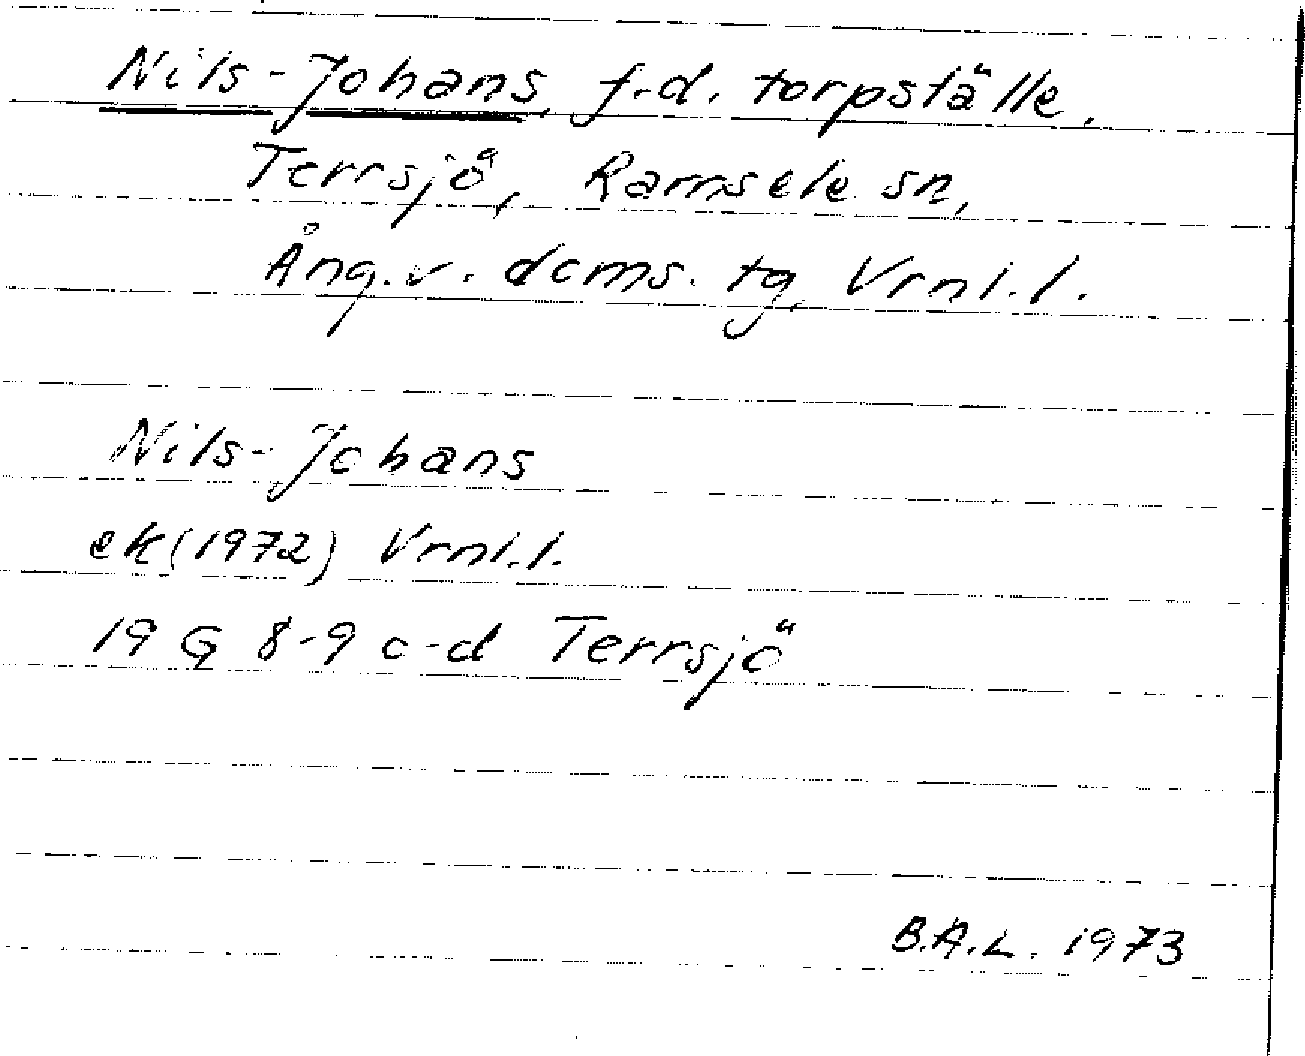 Nils-Johans, f.d. torpställe.
Terrsjö, Ramsele sn,
Ång.v. doms. tg, Vrnl.l.
Nils-Johans
ek (1972) Vrnl.l.
19 G 8-9 c-d Terrsjö
B.A.L. 1973